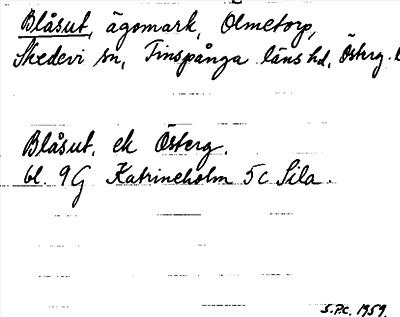 Blåsut, ägomark, Olmetorp,
Skedevi sn, Finspånga läns hd, Österg. l
Blåsut, ek Österg.
bl. 9G Katrineholm 5c Sila.
S.P.C. 1959.